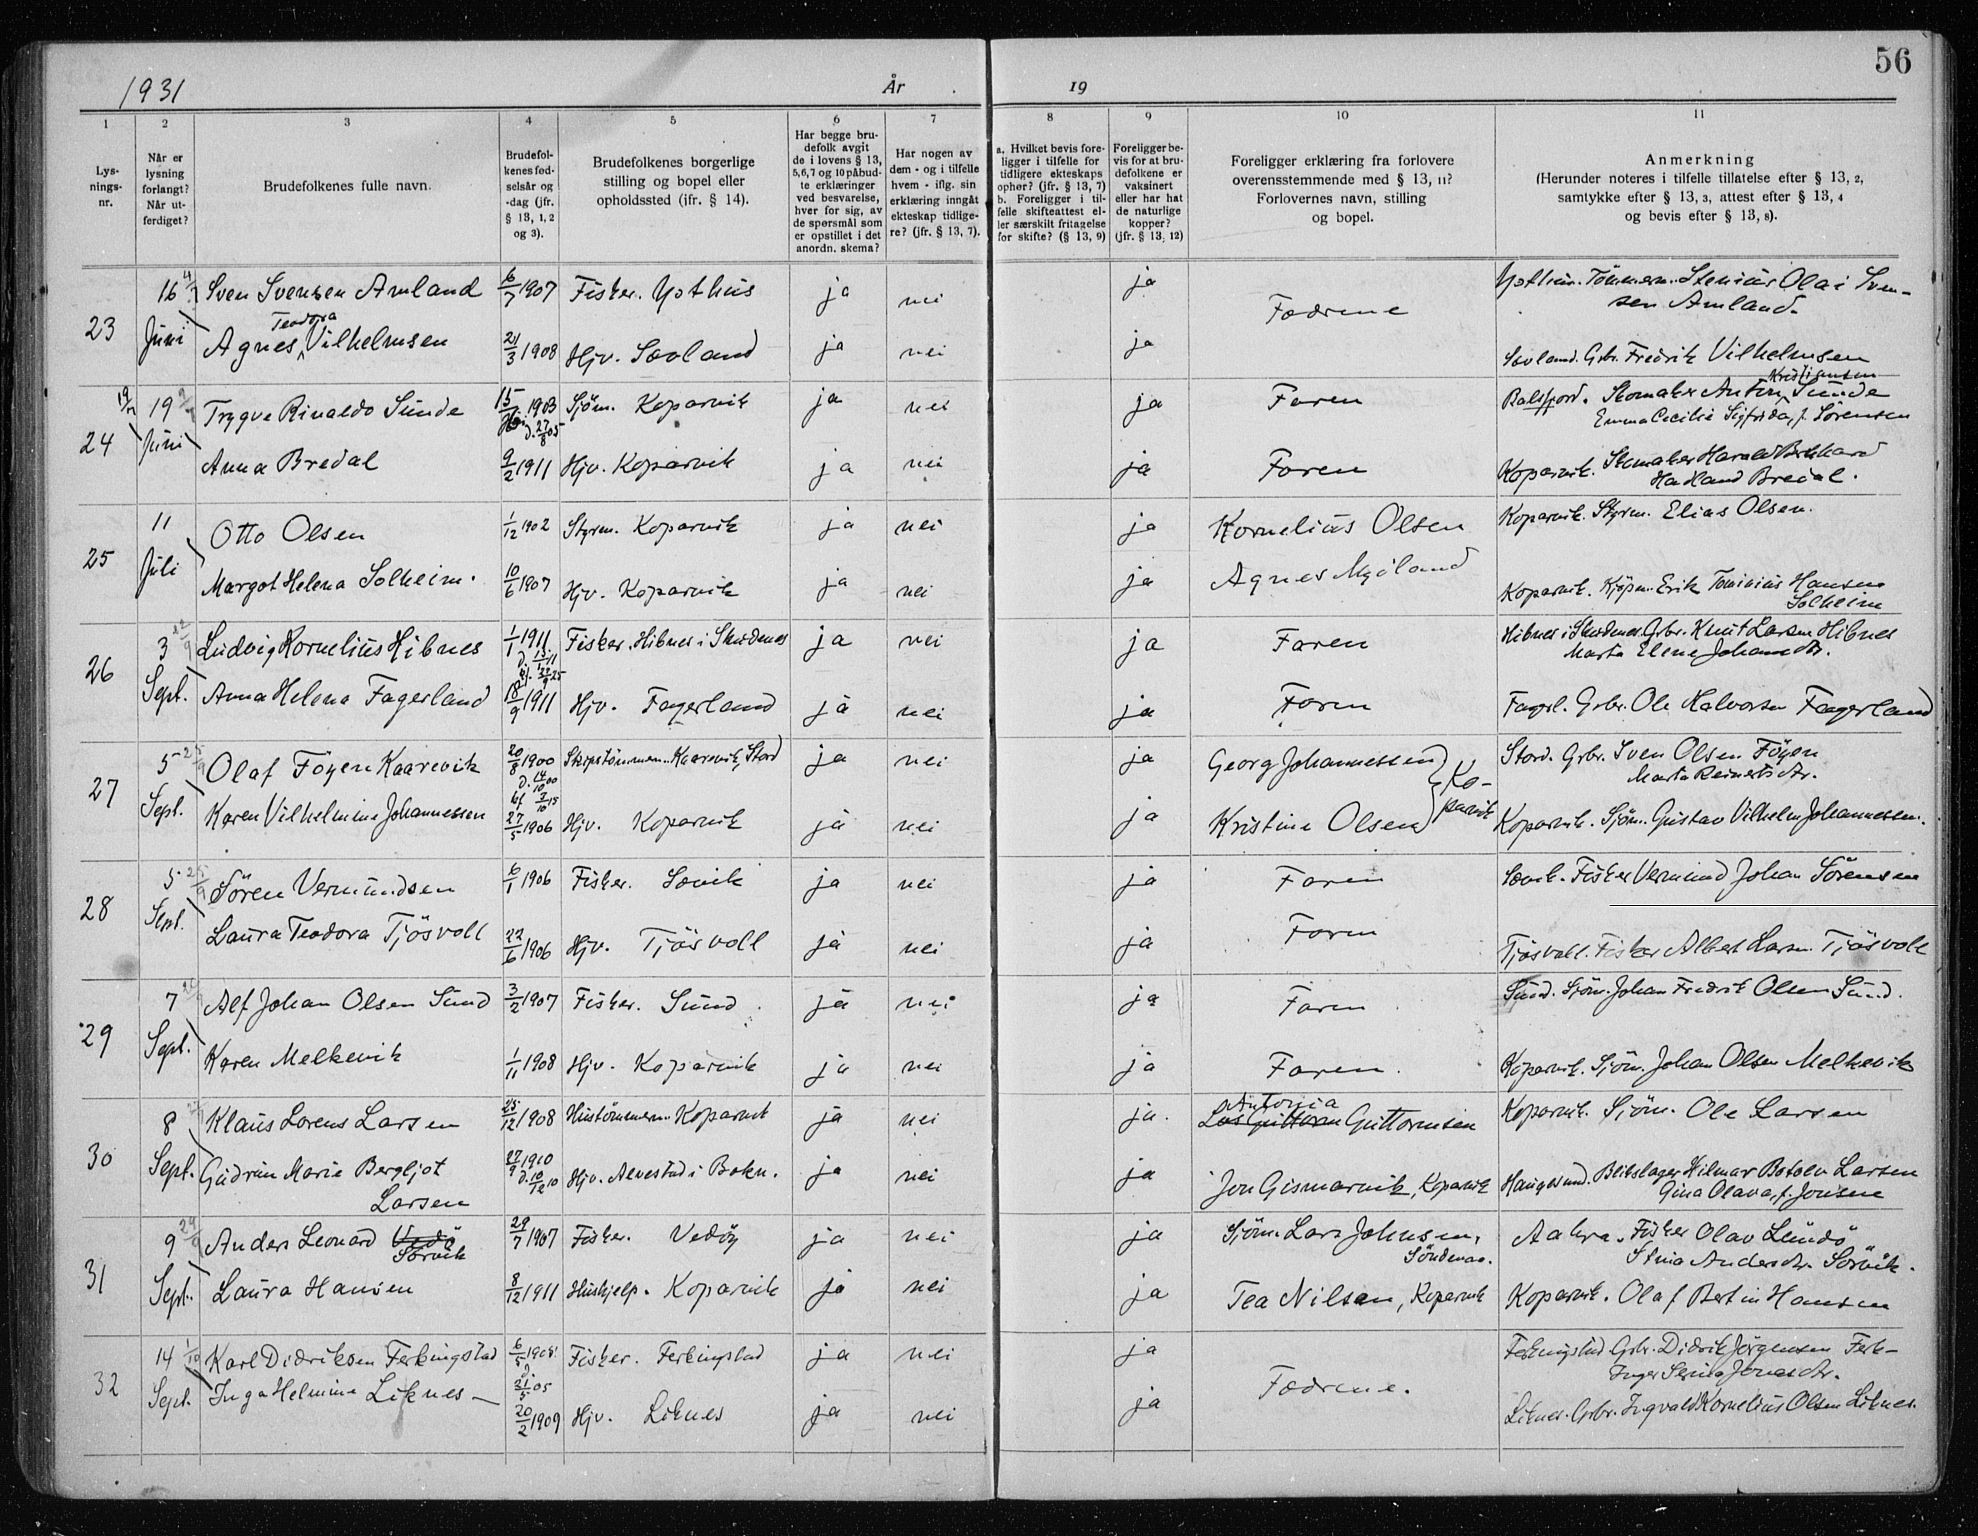 56
1931 År 19
1 2 3 4 5 6 7 8 9 10 11
Lysningsnr.
Når er lysning forlangt? Når utferdiget?
Brudefolkenes fulle navn.
Brudefolkenes fødselsår og -dag (jfr. § 13, 1, 2 og 3).
Brudefolkenes borgerlige stilling og bopel eller opholdssted (jfr. § 14).
Har begge brudefolk avgit de i lovens § 13, 5, 6, 7 og 10 påbudte erklæringer ved besvarelse, hver for sig, av de spørsmål som er opstillet i det anordn. skema?
Har nogen av dem - og i tilfelle hvem - iflg. sin erklæring inngått ekteskap tidligere? (jfr. § 13, 7).
a. Hvilket bevis foreligger i tilfelle for tidligere ekteskaps ophør? (jfr. § 13, 7) b. Foreligger i tilfelle skifteattest eller særskilt fritagelse for skifte? (§ 13, 9)
Foreligger bevis for at brudefolkene er vaksinert eller har hat de naturlige kopper? (jfr. § 13, 12)
Foreligger erklæring fra forlovere overensstemmende med § 13, 11? Forlovernes navn, stilling og bopel.
Anmerkning (Herunder noteres i tilfelle tillatelse efter § 13, 2, samtykke efter § 13, 3, attest efter § 13, 4 og bevis efter § 13, 8).
23 16 Juni Sven Svensen Amland 6/7 1907 Fisker. ja nei ja Fædrene Tömmerm. Stenius Olai Svensen Amland.
Agnes Teodora Vilhelmsen 21/3 1908 Hjv. Sævland ja nei ja Sævland. Grbr. Fredrik Vilhelmsen
24 19 Juni Trygve Rinaldo Sunde 15/ 1903 d. 27/8 05 Sjöm. Koparvik ja nei ja Faren Balsfjord. Skomaker Anton Kristiansen Sunde
Emma Cecilie Sigfrida, f. Sörensen
Anna Bredal 9/2 1911 Hjv. Koparvik ja nei ja Faren Koparvik. Skomaker Harald
Hadland Bredal.
25 11 Juli Otto Olsen 1/12 1902 Styrm. Koparvik ja nei ja Kornelius Olsen Koparvik. Styrm. Elias Olsen.
Margot Helena Solheim. 10/6 1907 Hjv. Koparvik ja nei ja Agnes Myöland Koparvik. Kjöpm. Erik Tominius Hansen
Solheim
26 3 Sept. 22/9 Ludvig Kornelius Hibnes 1/1 1911 Fisker. Hibnes i Skudenes ja nei ja Faren Hibnes i Skudenes. Grbr. Knut Larsen Hibnes
Marta Elene Johansdtr.
Anna Helena Fagerland 18/9 1911 Hjv. Fagerland ja nei ja Faren Fagerl. Grbr. Ole Halvorsen Fagerland
27 5 Sept. Olaf Föyen Kaarevik 20/8 1900 d. 14/10 00 kf 3/10 15 Skipstömmerm. Kaarevik, Stord ja nei ja Georg Johannessen Koparvik Stord. Grbr. Sven Olsen Föyen
Marta Reinertsdtr.
Karen Vilhelmine Johannessen 27/5 1906 Hjv. Koparvik ja nei ja Kristine Olsen Koparvik. Sjöm. Gustav Vilhelm Johannessen.
28 5 Sept. 25/9 Sören Vermundsen 6/1 1906 Fisker. Sævik ja nei ja Faren Sævik. Fisker Vermund Johan Sörensen
Laura Teodora Tjösvoll 22/6 1906 Hjv. Tjösvoll ja nei ja Faren Tjösvoll. Fisker Albert Larsen Tjösvoll
29 7 Sept. Alf Johan Olsen Sund 3/2 1907 Fisker. Sund. ja nei ja Faren Sund. Sjöm. Johan Fredrik Olsen Sund.
Karen Melkevik 1/11 1908 Hjv. Koparvik ja nei ja Faren. Koparvik. Sjöm. Johan Olsen Melkevik
30 8 Sept. Klaus Lorens Larsen 25/12 1908 Hustömmerm. Koparvik ja nei ja. Antonia Guttormsen Koparvik. Sjöm. Ole Larsen
Gudrun Marie Bergljot Larsen 27/9 1910 d. 10/12 10 Hjv. Alvestad i Bokn. ja nei ja Jon Gismarvik, Koparvik Haugesund. Blikslager Hilmar Botolv Larsen
Gina Olava, f. Jonsen
31 9 Sept. 29/9 Anders Leonard Vedö Sörvik 29/7 1907 Fisker. Vedöy ja nei ja Sjöm. Lars Johnsen, Söndenaa. Aakra. Fisker Olav Lundö
Stina Andersdtr. Sörvik.
Laura Hansen 8/12 1911 Hushjelp. Koparvik ja nei ja Tea Nilsen, Koparvik Koparvik. Olaf Bertin Hansen
32 14 Sept. 1/10 Karl Didriksen Ferkingstad 6/5 1905 d. 21/5 05 Fisker. Ferkingstad ja nei ja Fædrene. Ferkingstad Grbr. Didrik Jörgensen Ferk-
Inger Serina Jonasdtr.
Inga Helmine Liknes 20/2 1909 Hjv. Liknes ja nei ja Liknes. Grbr. Ingvald Kornelius Olsen Liknes.